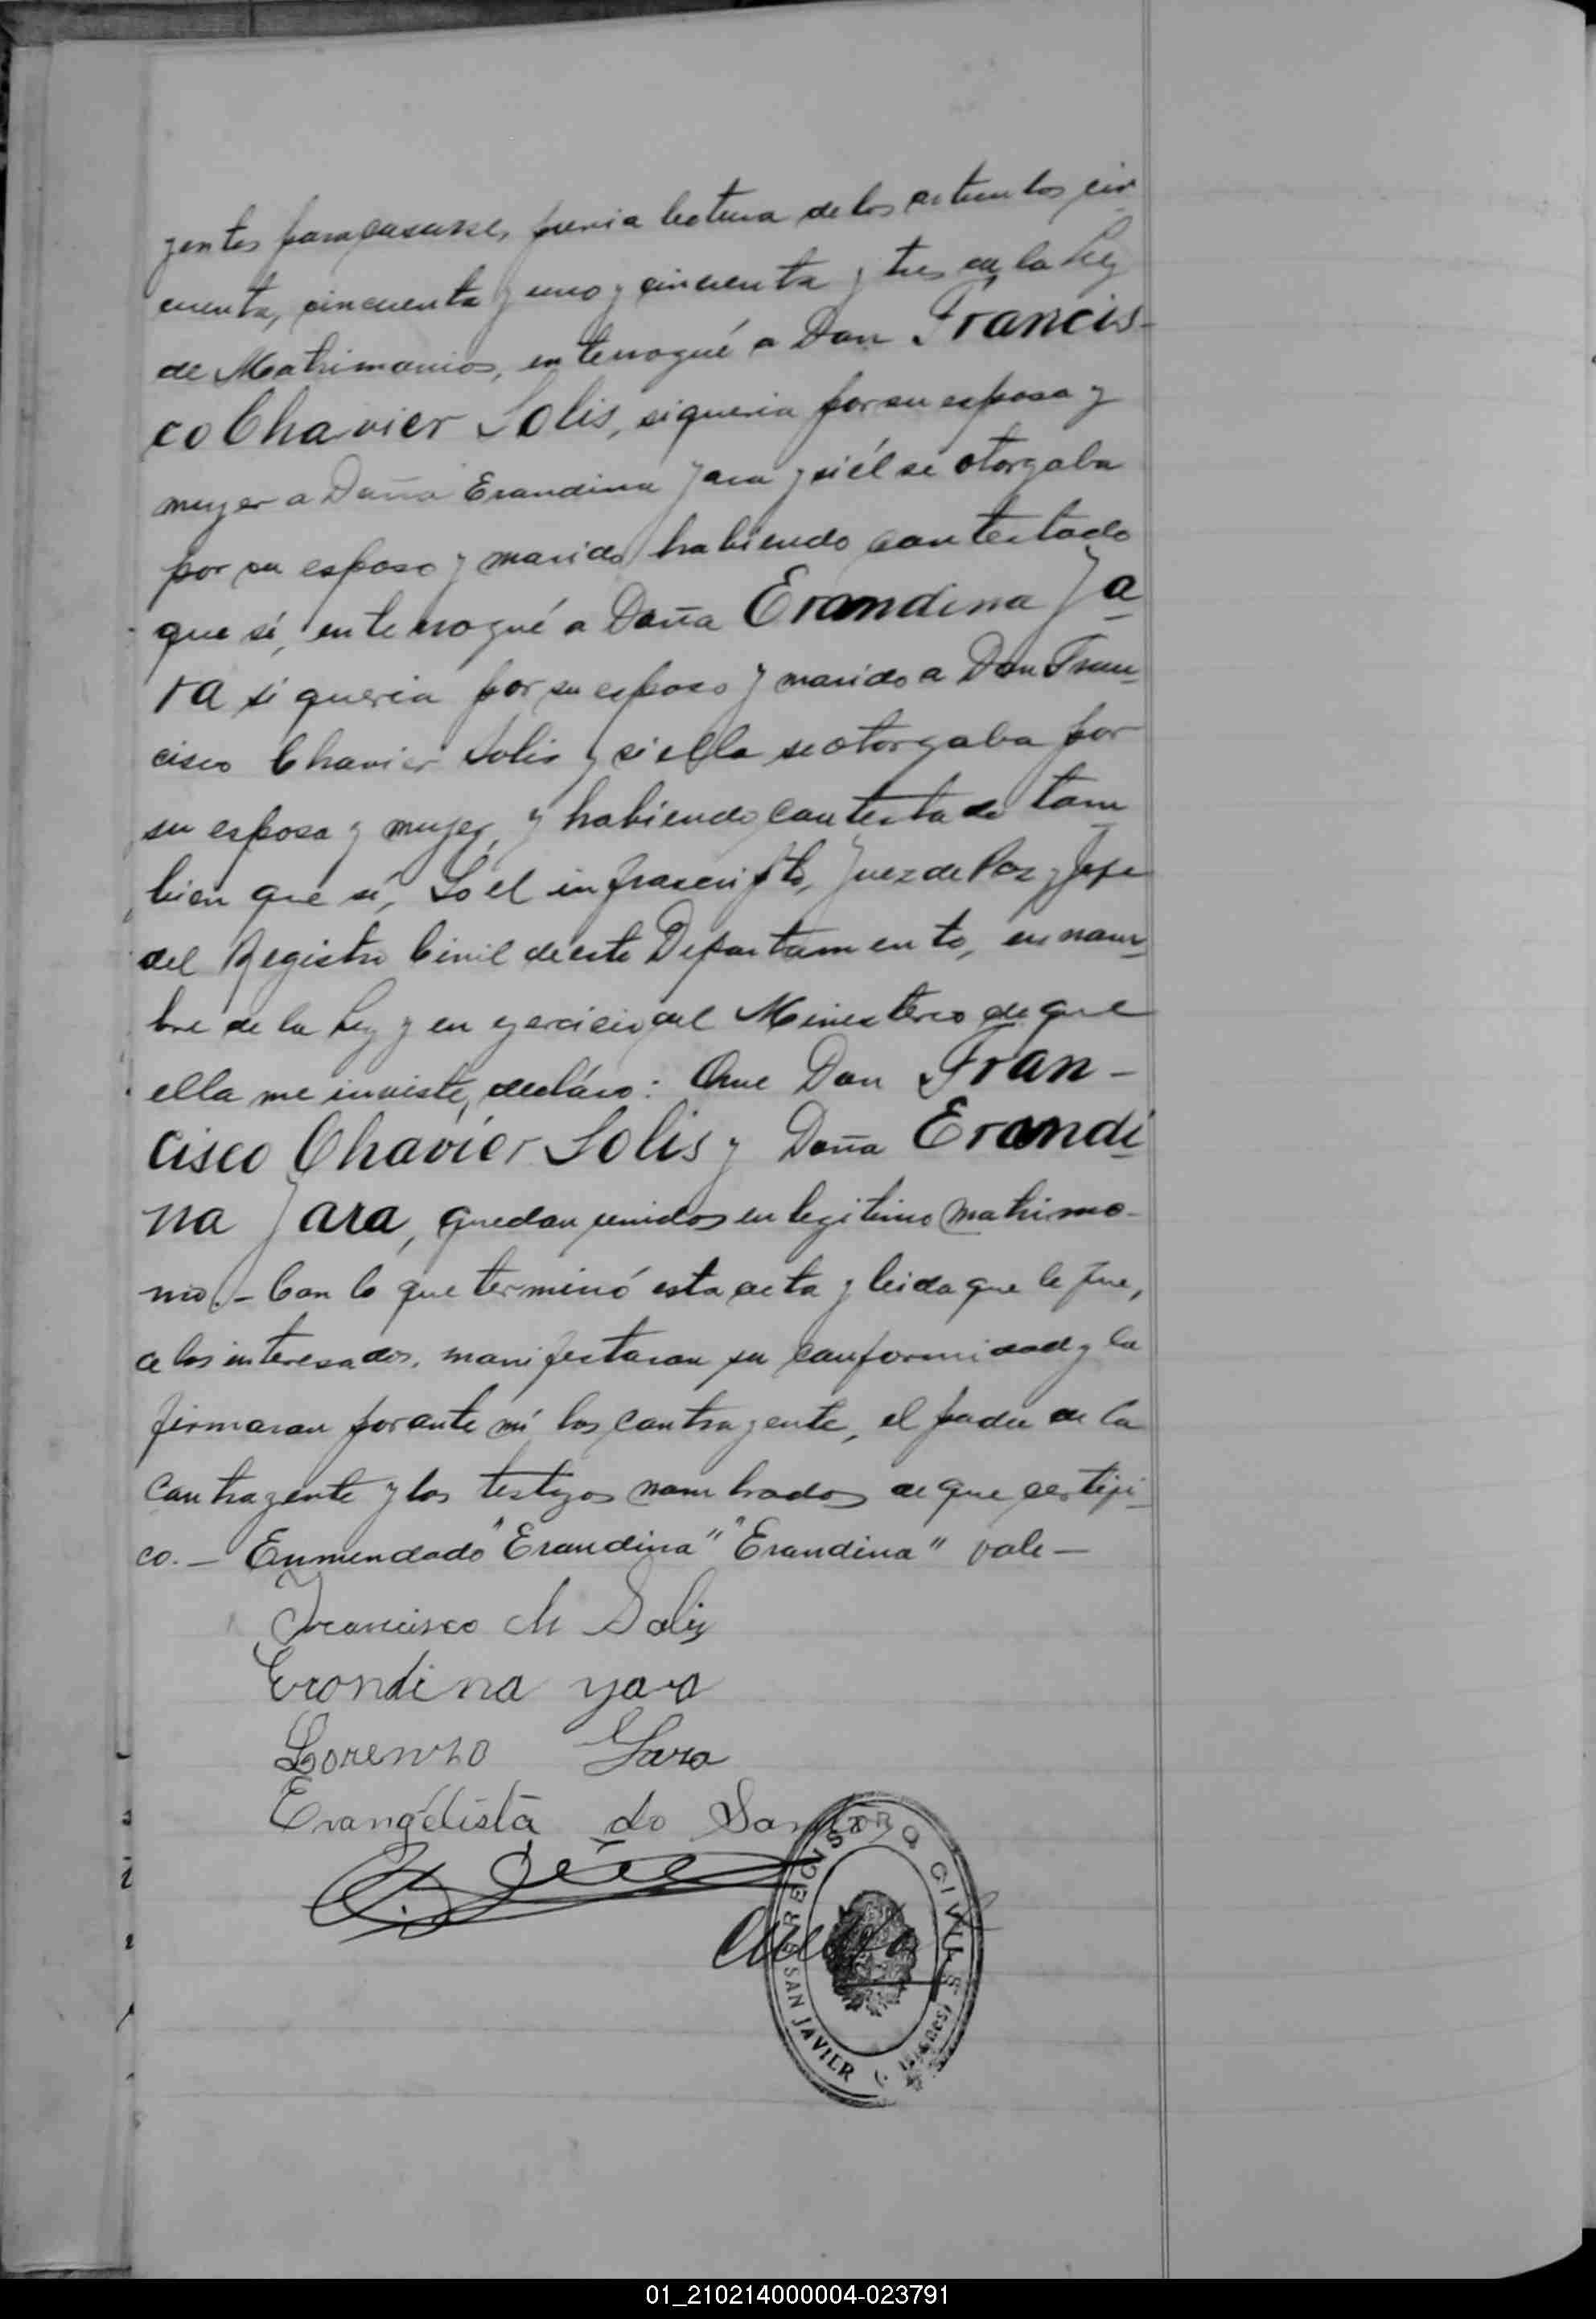 yentes para casarse, previa lectura de los artículos cin
cuenta, cincuenta y uno y cincuenta y tres de la Ley
de Matrimonios, interrogué a Don Francis-
co Chavier Solis, si queria por su esposa y
mujer a Doña Erandina Jara y si él se otorgaba
por su esposo y marido, habiendo contestado
que sí, interrogué a Doña Erandina Ja
ra si queria por su esposo y marido a Don Fran
cisco Chavier Solis y si ella se otorgaba por
su esposa y mujer, y habiendo contestado tam
bien que sí, Yo el infrascripto, Juez de Paz y Jefe
del Registro Civil de este Departamento, en nom
bre de la Ley y en ejercicio del Ministerio de que
ella me inviste, decláro: Que Don Fran-
cisco Chavier Solis y Doña Erandi
na Jara, quedan unidos en legitimo matrimo-
nio.- Con lo que terminó esta acta y leida que le fue,
a los interesados, manifestaron su conformidad y la
firmaron por ante mí los contrayente, el padre de la
contrayente y los testigos nombrados de que certifi
co.- Enmendado "Erandina" "Erandina" vale-
Francisco Ch Solis
Erondina yara
Lorenzo Jara
Evangélista do Santos
REGISTRO CIVIL
SAN JAVIER (Misiones)
01_210214000004-023791